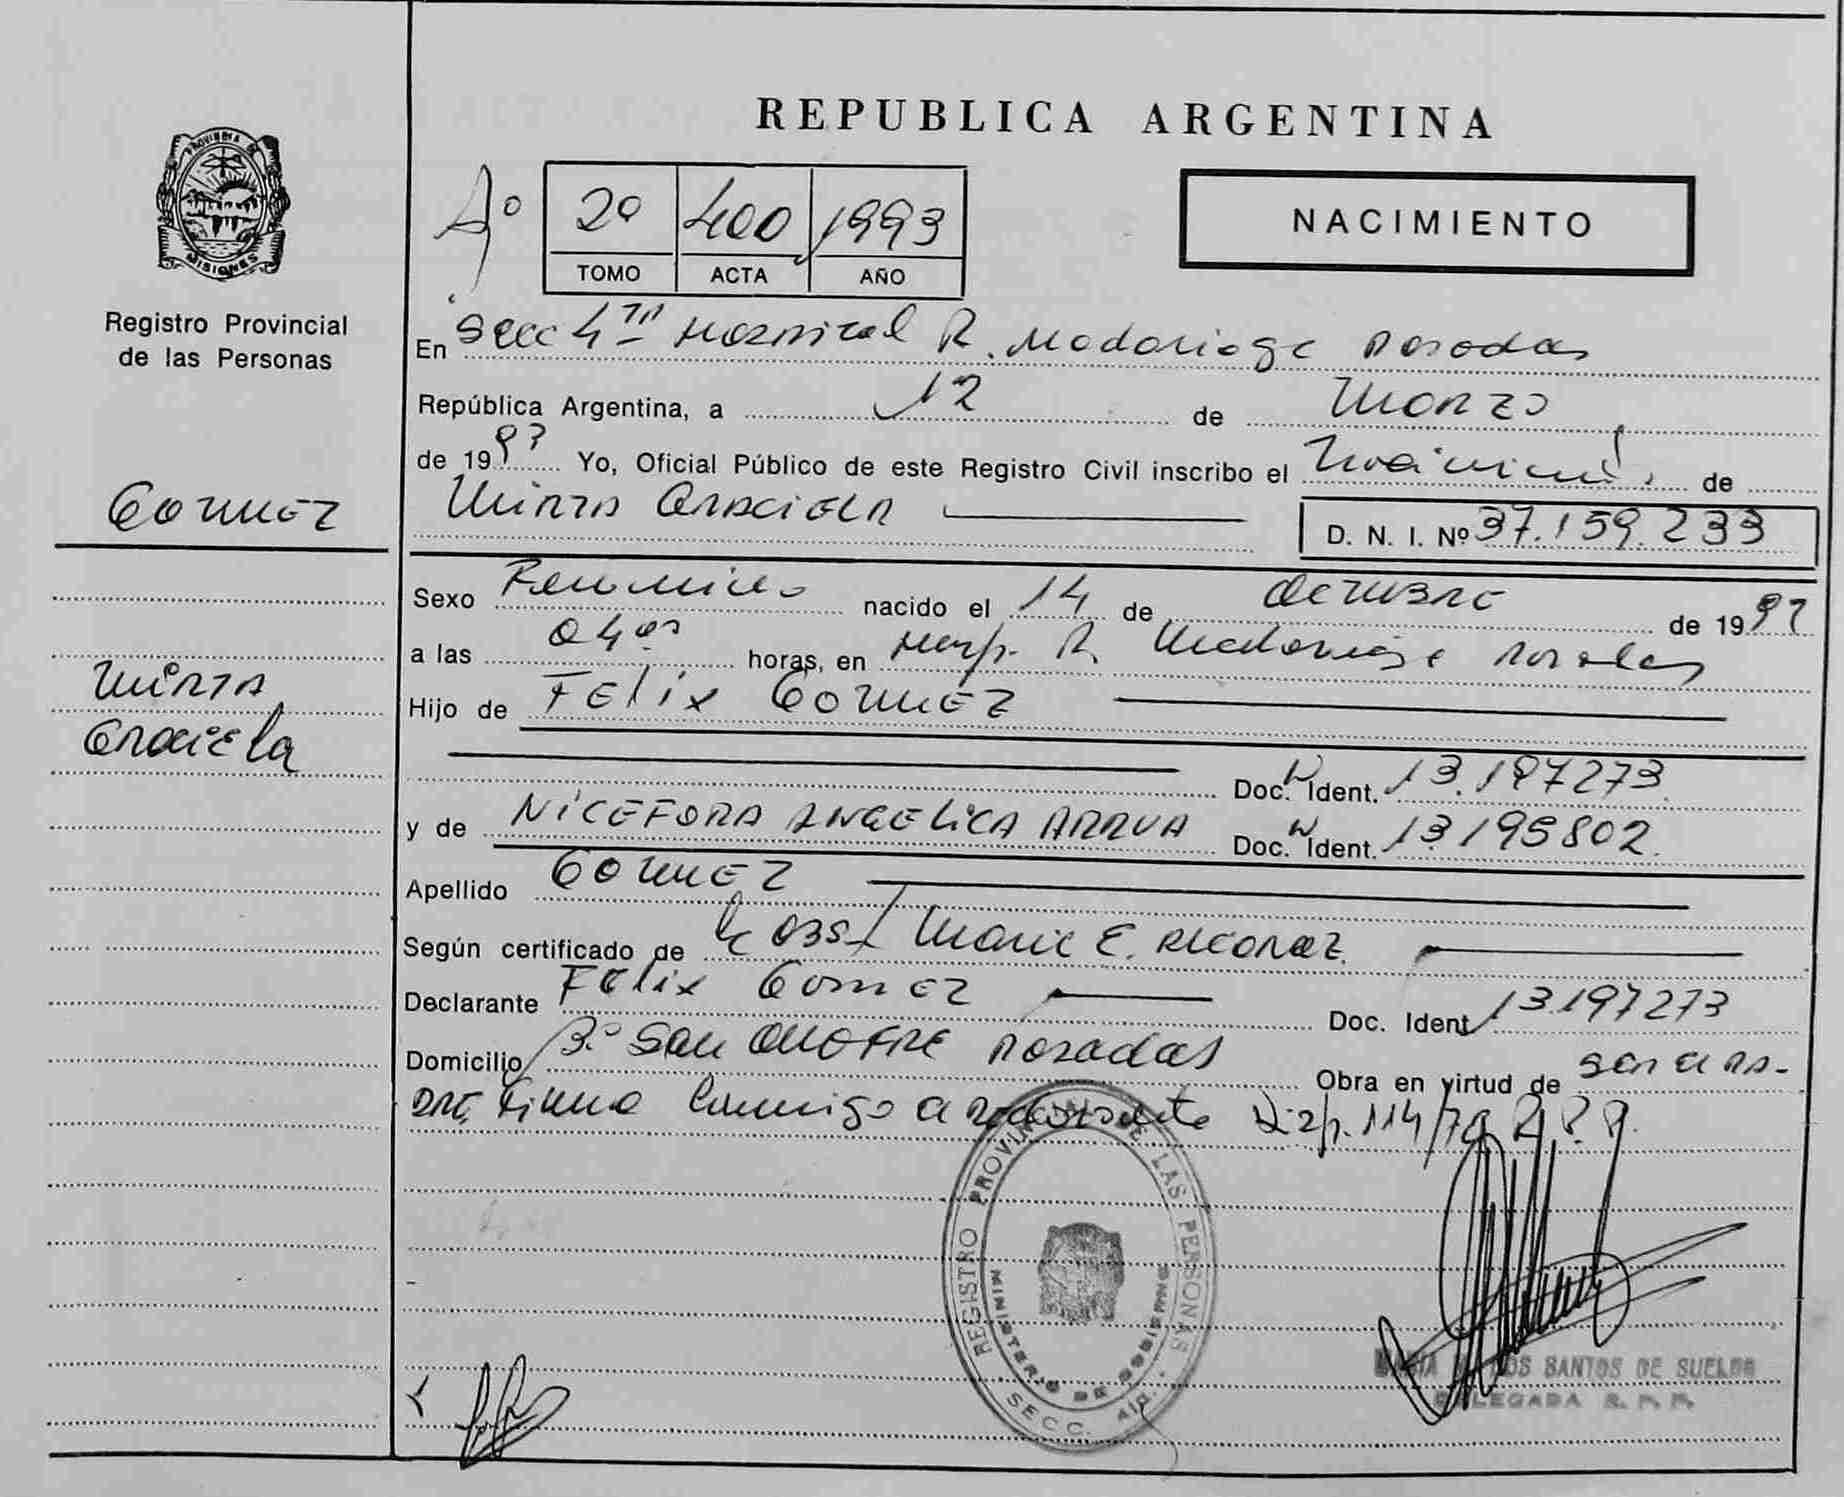 REPUBLICA ARGENTINA
PROVINCIA DE
MISIONES
Registro Provincial
de las Personas
Aº
2º 400 1993
TOMO ACTA AÑO
NACIMIENTO
En Secc 4ta Hospital R. Madariaga Posadas
República Argentina, a 12 de Marzo
de 1993 Yo, Oficial Público de este Registro Civil inscribo el de
GOMEZ
MIRTA GRACIELA
D. N. I. Nº 37.159.233
Sexo Femenino nacido el 14 de OCTUBRE de 1992
a las 04 horas, en Hosp. R. Madariaga Posadas
MIRTA
GRACIELA
Hijo de FELIX GOMEZ
Doc. Ident. 13.197273
y de NICEFORA ANGELICA ARRUA Doc. Ident. 13195802
Apellido GOMEZ
Según certificado de Obst Maria E.
Declarante FELIX GOMEZ Doc. Ident 13197273
Domicilio Bº SAN ONOFRE POSADAS Obra en virtud de ser el PA-
DRE, Firma Conmigo Disp. 114/79 R.P.P.
REGISTRO PROVINCIAL DE LAS PERSONAS
MINISTERIO DE GOBIERNO
SECC. 4ta.
DOS SANTOS DE SUELDO
DELEGADA R. P. P.